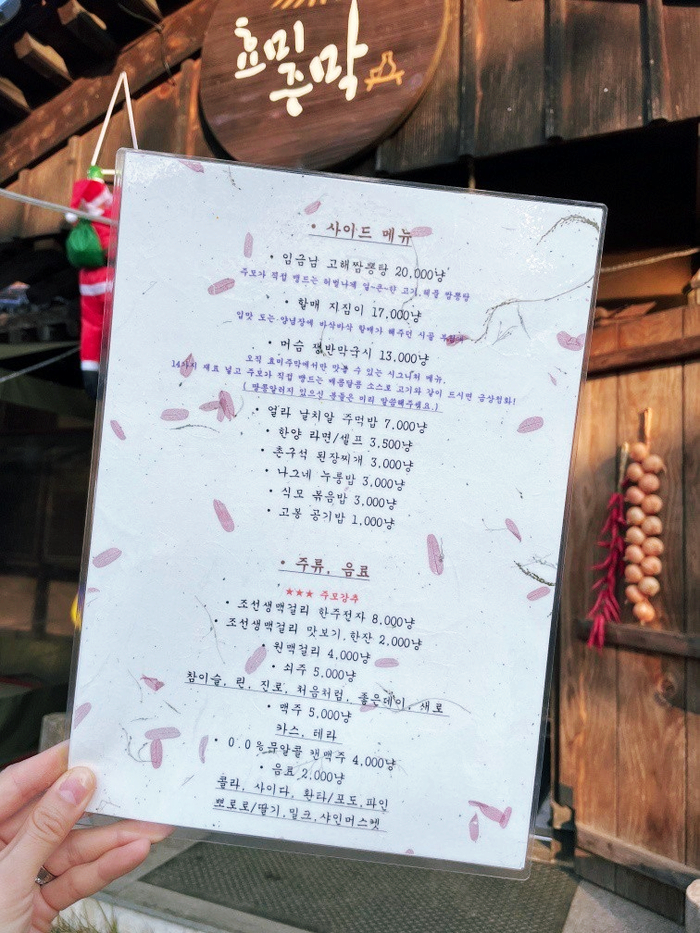 효미
주막
• 사이드 메뉴
• 임금님 고해짬뽕탕 20,000냥
주모가 직접 맹드는 허벌나게 얼~큰~한 고기,해물 짬뽕탕
• 할매 지짐이 17,000냥
입맛 도는 양념장에 바삭바삭 할매가 해주던 시골
• 머슴 쟁반막국시 13,000냥
오직 효미주막에서만 맛볼 수 있는 시그니처 메뉴.
14가지 재료 넣고 주모가 직접 맹드는 매콤달콤 소스로 고기와 같이 드시면 금상첨화!
( 땅콩알러지 있으신 분들은 미리 말씀해주세요.)
• 얼라 날치알 주먹밥 7,000냥
• 한양 라면/셀프 3,500냥
• 촌구석 된장찌개 3,000냥
• 나그네 누룽밥 3,000냥
• 식모 볶음밥 3,000냥
• 고봉 공기밥 1,000냥
• 주류, 음료
★★★ 주모강추
• 조선생맥걸리 한주전자 8,000냥
• 조선생맥걸리 맛보기,한잔 2,000냥
• 원맥걸리 4,000냥
• 쇠주 5,000냥
참이슬, 린, 진로, 처음처럼, 좋은데이, 새로
• 맥주 5,000냥
카스, 테라
• 0.0%무알콜 캔맥주 4,000냥
• 음료 2,000냥
콜라, 사이다, 환타/포도,파인
뽀로로/딸기,밀크,샤인머스켓